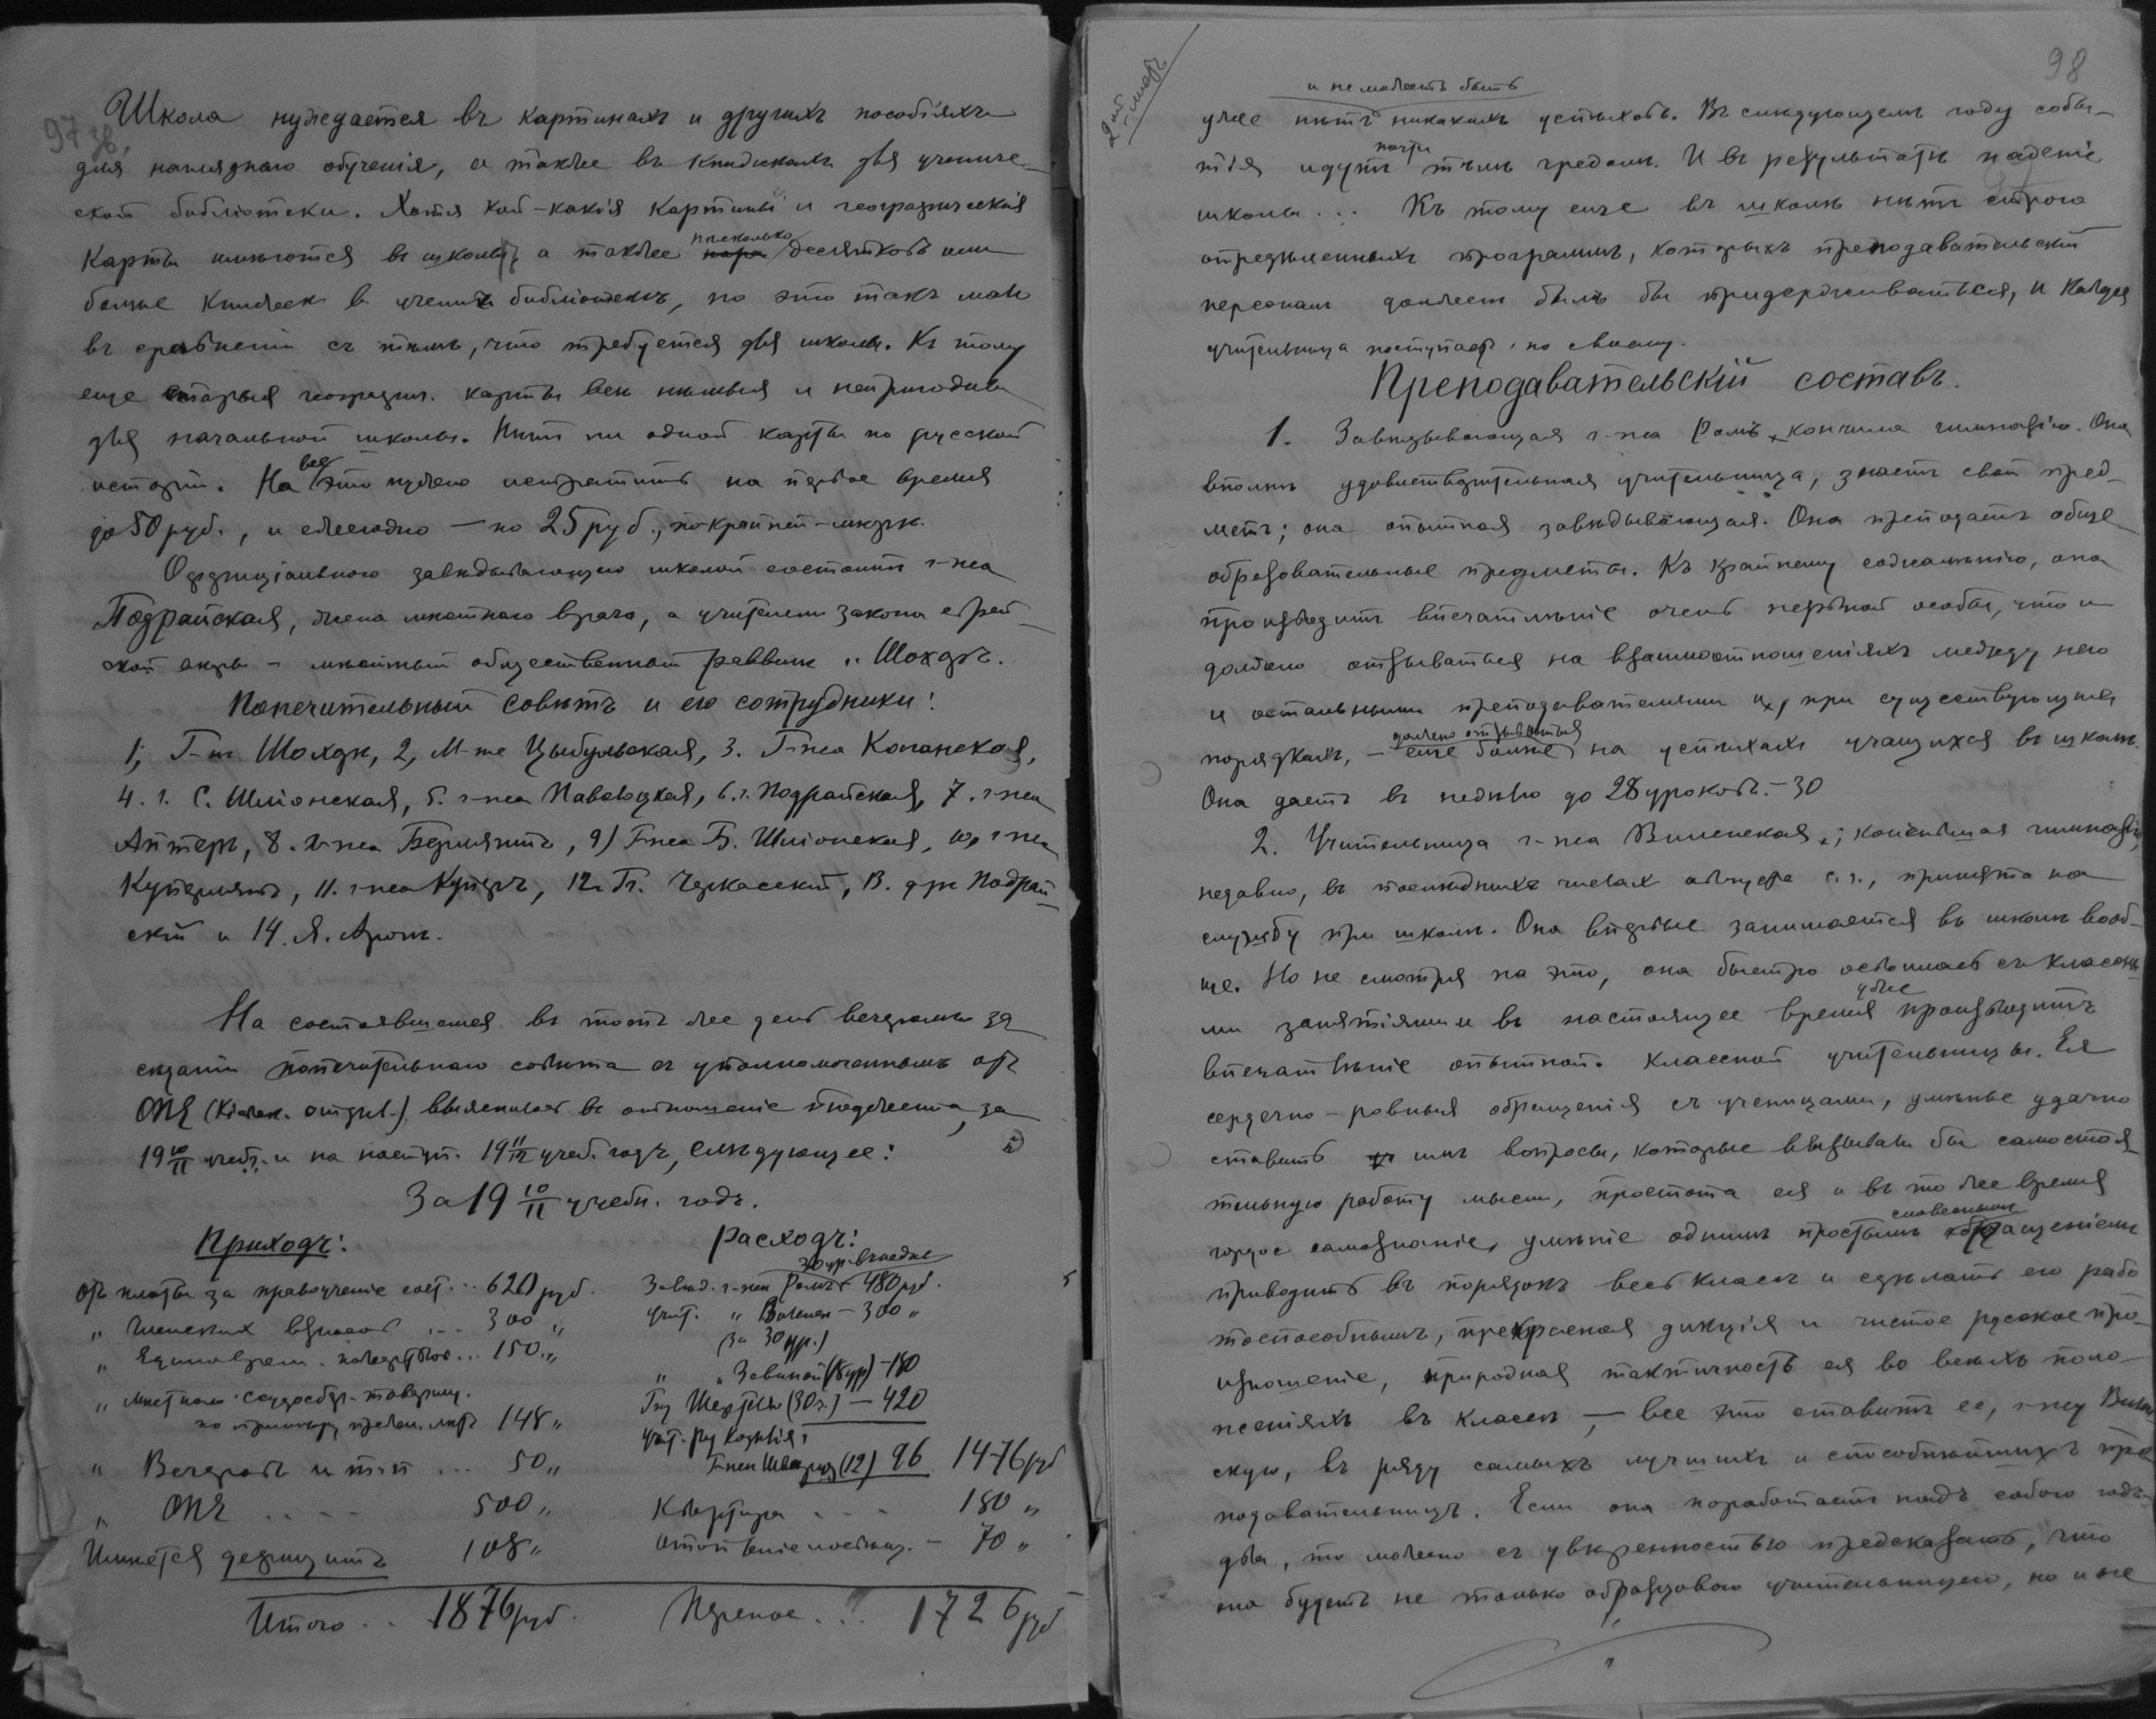 97 зв.
Школа нуждается въ картинахъ и другихъ пособіяхъ
для нагляднаго обученія, а также въ книжкахъ для учениче-
ской библіотеки. Хотя кой-какія картины и географическія
карты имѣются въ школѣ, а также нѣсколько десятковъ или
болѣе книжекъ въ ученич. библіотекѣ, но это такъ мало
въ сравненіи съ тѣмъ, что требуется для школы. Къ тому
еще старыя географич. карты всѣ нѣмыя и непригодны
для начальной школы. Нѣтъ ни одной карты по русской
исторіи. На все это нужно истратить на первое время
до 50 руб., и ежегодно — по 25 руб., по крайней-мѣрѣ.
Оффиціальною завѣдывающею школой состоитъ г-жа
Подрайская, жена мѣстнаго врача, а учителемъ закона еврей-
ской вѣры - мѣстный общественный раввинъ г. Шохдъ.
Попечительный совѣтъ и его сотрудники:
1, Г-нъ Шохдъ, 2, М-me Цыбульская, 3. Г-жа Копанская,
4. г. С. Шліонская, 5. г-жа Паволоцкая, 6. г. Подрайская, 7. г-жа
Аптеръ, 8. г-жа Берлянтъ, 9) Г-жа Б. Шліонская, 10, г-жа
Куперлянтъ, 11. г-жа Куперъ, 12. Гг. Черкасскій, 13. д-ръ Подрай-
скій и 14. Я. Аронъ.
На состоявшемся въ тотъ же день вечеромъ за-
сѣданіи попечительнаго совѣта съ уполномоченнымъ отъ
ОПЕ (Кіевск. отдѣл.) выяснилось въ отношеніе бюджета, за
19 10/11 учебн. и на наступ. 19 11/12 учеб. годъ, слѣдующее:
За 19 10/11 учебн. годъ.
Приходъ:
Отъ платы за правоученіе сост... 620 руб.
„ Членскихъ взносовъ ... 300 „
„ Единоврем. пожертвов... 150 „
„ Мѣстнаго ссудосбер. товарищ.
148 „
„ Вечеровъ и т.п ... 50 „
„ ОПЕ .... 500 „
Имѣется дефицитъ 108 „
Итого .. 1876 руб.
Расходъ:
30 ур. въ недѣлю
Завѣд. г-жѣ Ромъ - 480 руб.
Учит. „ Виленск — 300 „
(за 30 ур.)
„ „ (8 ур) - 180
(30 ч.) — 420
Учит. рукодѣлія,
Г-жѣ Шварцъ (12) 96 1476 руб
Квартира . . . 180 „
Отопленіе - 70 „
1726 руб
98
2-ой
и не можетъ быть
уже нѣтъ никакихъ успѣховъ. Въ слѣдующемъ году собы-
тія идутъ почти тѣмъ чредомъ. И въ результатѣ паденіе
школы... Къ тому еще въ школѣ нѣтъ строго
опредѣленныхъ программъ, которыхъ преподавательскій
персоналъ долженъ былъ бы придерживаться, и каждая
учительница поступаетъ по своему.
Преподавательскій составъ.
1. Завѣдывающая г-жа Ромъ, кончила гимназію. Она
вполнѣ удовлетворительная учительница, знаетъ свой пред-
метъ; она опытная завѣдывающая. Она преподаетъ обще-
образовательные предметы. Къ крайнему сожалѣнію, она
производитъ впечатлѣніе очень нервной особы, что и
должно отзываться на взаимоотношеніяхъ между нею
и остальными преподавателями и, при существующихъ
порядкахъ, — еще болѣе должно отзываться на успѣхахъ учащихся въ школѣ.
Она даетъ въ недѣлю до 28 уроковъ. - 30
2. Учительница г-жа Виленская, ; кончившая гимназію
недавно, въ послѣднихъ числахъ августа с.г., принята на
службу при школѣ. Она впервые занимается въ школѣ вооб-
ще. Но не смотря на это, она быстро освоилась съ классны-
ми занятіями и въ настоящее время уже производитъ
впечатлѣніе опытной классной учительницы. Ея
сердечно-ровныя обращенія съ ученицами, умѣнье удачно
ставить имъ вопросы, которые вызывали бы самостоя-
тельную работу мысли, простота ея и въ то же время
гордое самознаніе, умѣніе однимъ простымъ словеснымъ обращеніемъ
приводить въ порядокъ весь классъ и сдѣлать его рабо-
тоспособнымъ, прекрасная дикція и чистое русское про-
изношеніе, природная тактичность ея во всѣхъ поло-
женіяхъ въ классѣ, — все это ставитъ ее, г-жу Вилен-
скую, въ ряду самыхъ лучшихъ и способнѣйшихъ пре-
подавательницъ. Если она поработаетъ надъ собою годъ-
два, то можно съ увѣренностью предсказать, что
она будетъ не только образцовою учительницею, но и не